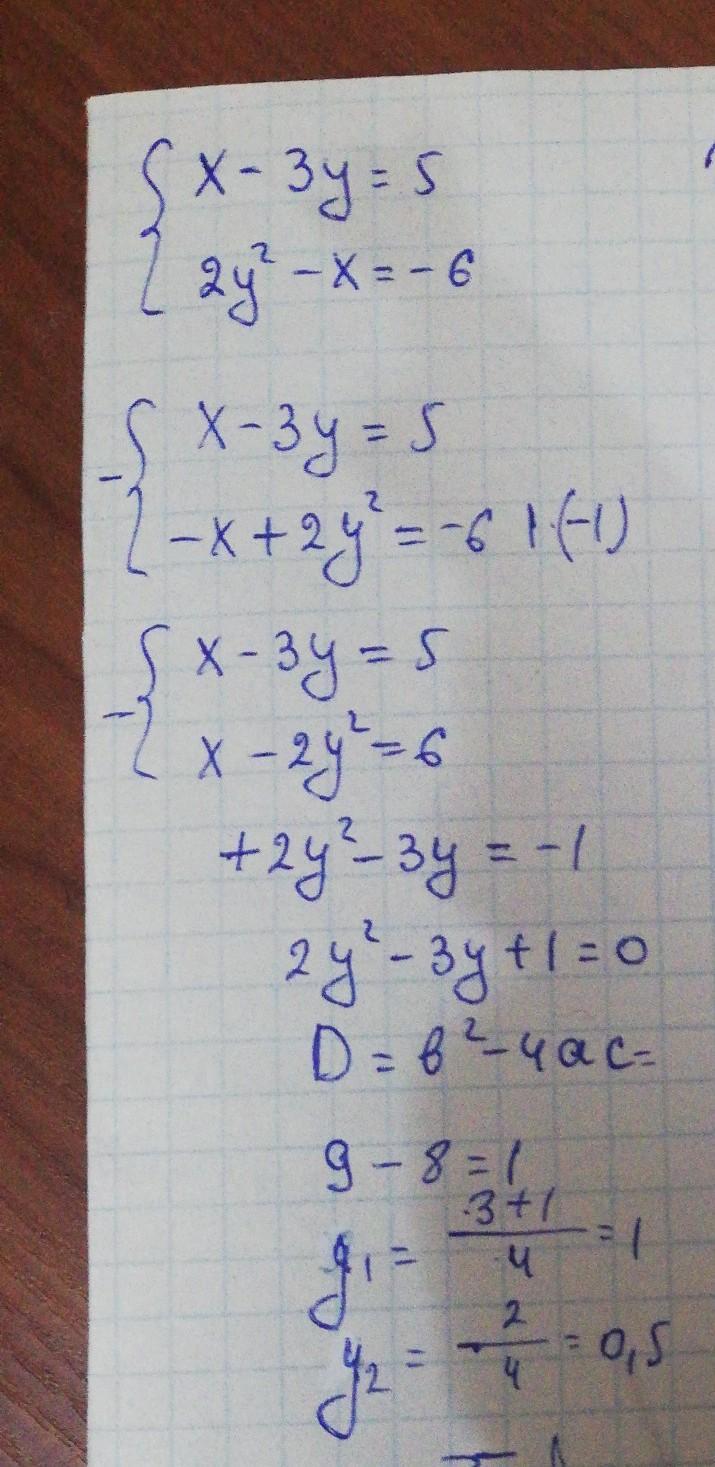 { x - 3y = 5
2y² - x = -6
- { x - 3y = 5
-x + 2y² = -6 | · (-1)
- { x - 3y = 5
x - 2y² = 6
+2y² - 3y = -1
2y² - 3y + 1 = 0
D = в² - 4ac =
9 - 8 = 1
y₁ = (3+1)/4 = 1
y₂ = 2/4 = 0,5